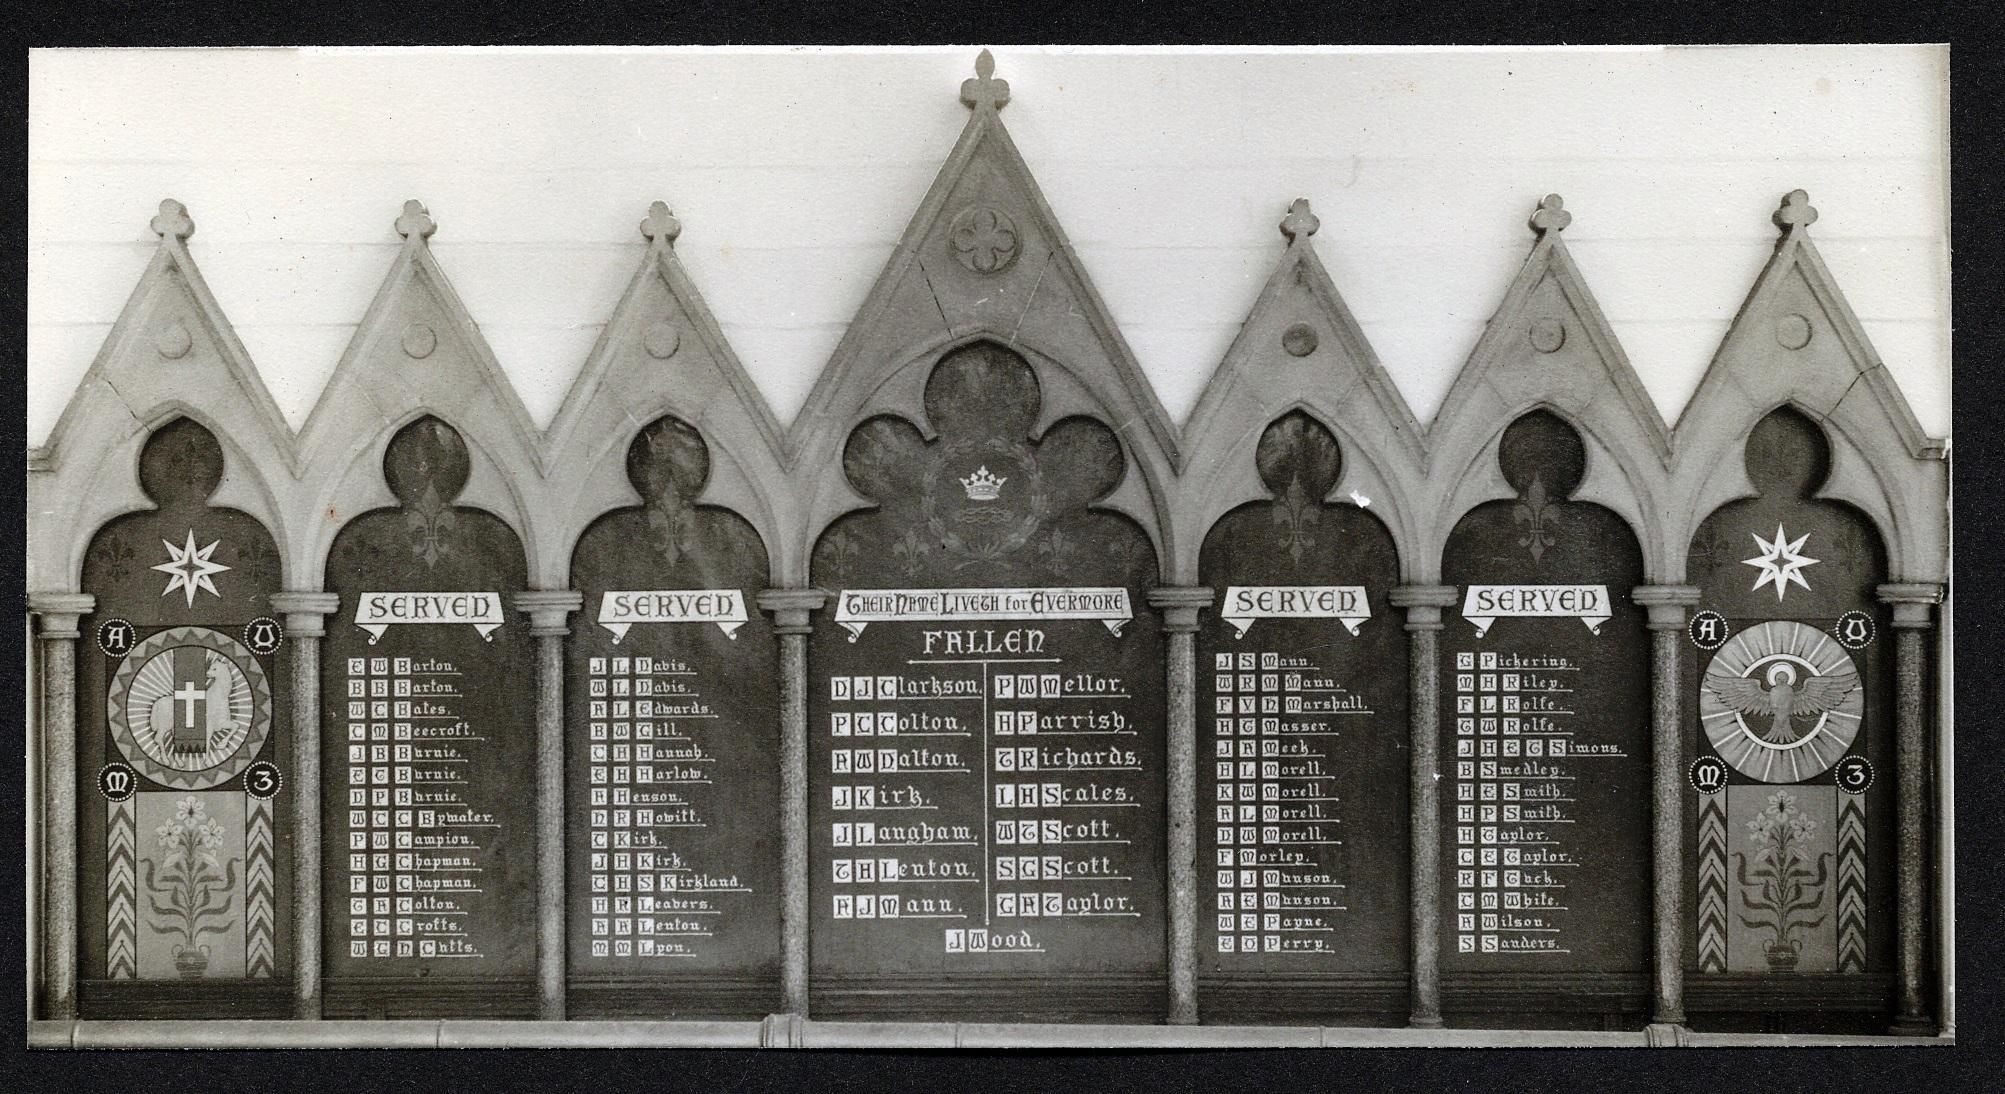 A O
M 3
SERVED
E W Barton.
B B Barton.
W C Bates.
C M Beecroft.
J B Burnie.
E C Burnie.
D P Burnie.
W C C Bywater.
P W Campion.
H G Chapman.
F W Chapman.
T A Colton.
E C Crofts.
W G N Cutts.
SERVED
J L Davis.
W L Davis.
A L Edwards.
B W Gill.
C H Hannah.
E H Harlow.
A Henson.
N R Howitt.
C Kirk.
J H Kirk.
C H S Kirkland.
H R Leavers.
A A Lenton.
M M Lyon.
THEIR NAME LIVETH for EVERMORE
FALLEN
D J Clarkson.
P C Colton.
A W Dalton.
J Kirk.
J Langham.
T H Lenton.
A J Mann.
P W Mellor.
H Parrish.
T Richards.
L H Scales.
W T Scott.
S G Scott.
G A Taylor.
J Wood.
SERVED
J S Mann.
W R M Mann.
F V H Marshall.
H T Masser.
J A Meek.
H L Morell.
K W Morell.
A L Morell.
D W Morell.
F Morley.
W J Munson.
A E Munson.
W E Payne.
E O Perry.
SERVED
G Pickering.
M H Riley.
F L Rolfe.
T W Rolfe.
J H E T Simons.
B Smedley.
H E Smith.
H P Smith.
H Taylor.
C E Taylor.
R F Tuck.
C M White.
A Wilson.
S Sanders.
A O
M 3